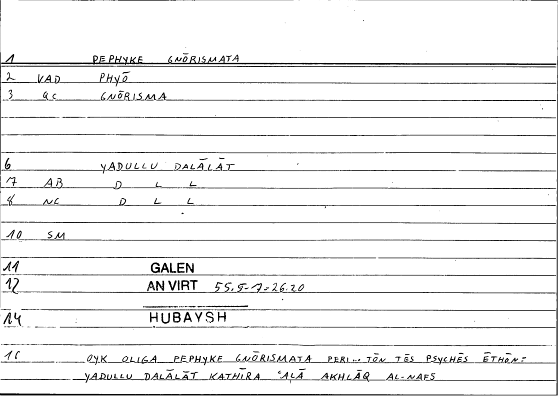 1 PEPHYKE GNŌRISMATA
2 VAD PHYŌ
3 QC GNŌRISMA
6 YADULLU DALĀLĀT
7 AB D L L
8 NC D L L
10 SM
11 GALEN
12 AN VIRT 55.5-7=26.20
14 HUBAYSH
16 OYK OLIGA PEPHYKE GNŌRISMATA PERI... TŌN TĒS PSYCHĒS ĒTHŌN=
YADULLU DALĀLĀT KATHĪRA ʿALĀ AKHLĀQ AL-NAFS